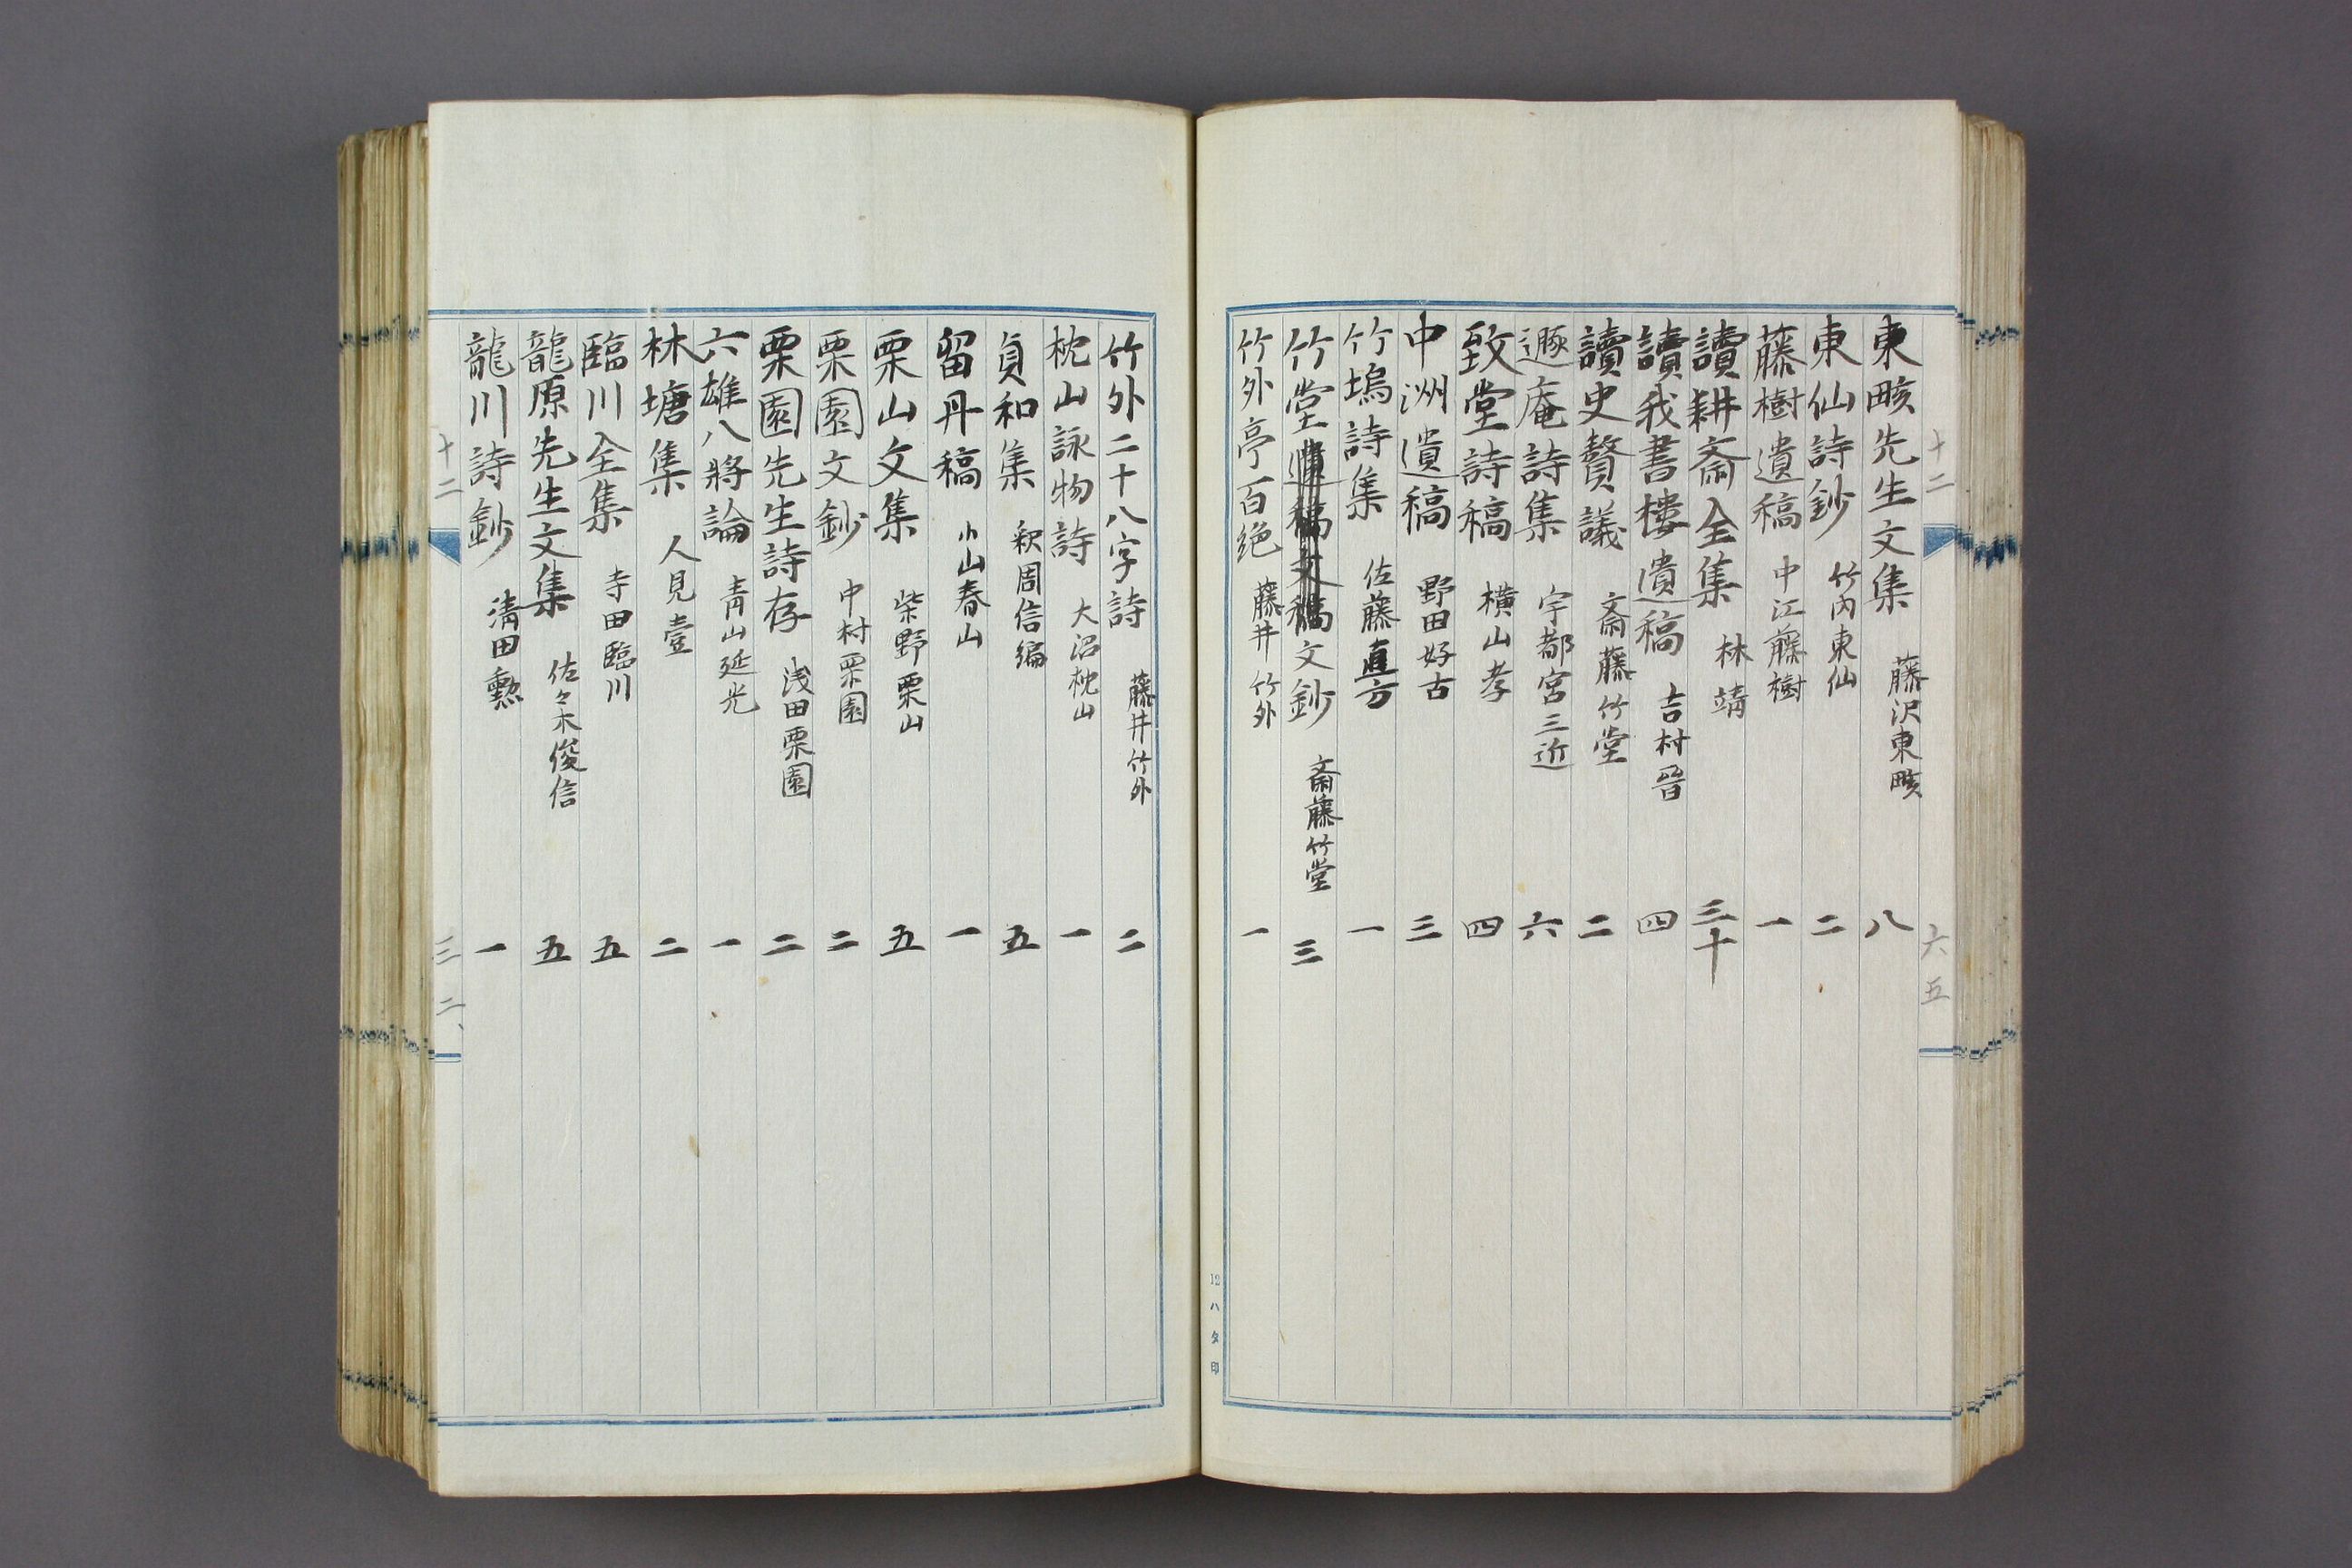 十二 六五
東畡先生文集 藤沢東畡 八
東仙詩鈔 竹内東仙 二
藤樹遺稿 中江藤樹 一
讀耕斎全集 林靖 三十
讀我書樓遺稿 吉村晉 四
讀史贅議 斎藤竹堂 二
遯庵詩集 宇都宮三近 六
致堂詩稿 横山孝 四
中洲遺稿 野田好古 三
竹塢詩集 佐藤直方 一
竹堂文鈔 斎藤竹堂 三
竹外亭百絶 藤井竹外 一
12ハタ印
竹外二十八字詩 藤井竹外 二
枕山詠物詩 大沼枕山 一
貞和集 釈周信編 五
留丹稿 小山春山 一
栗山文集 柴野栗山 五
栗園文鈔 中村栗園 二
栗園先生詩存 浅田栗園 二
六雄八將論 青山延光 一
林塘集 人見壹 二
臨川全集 寺田臨川 五
龍原先生文集 佐々木俊信 五
龍川詩鈔 清田勲 一
十二 三二